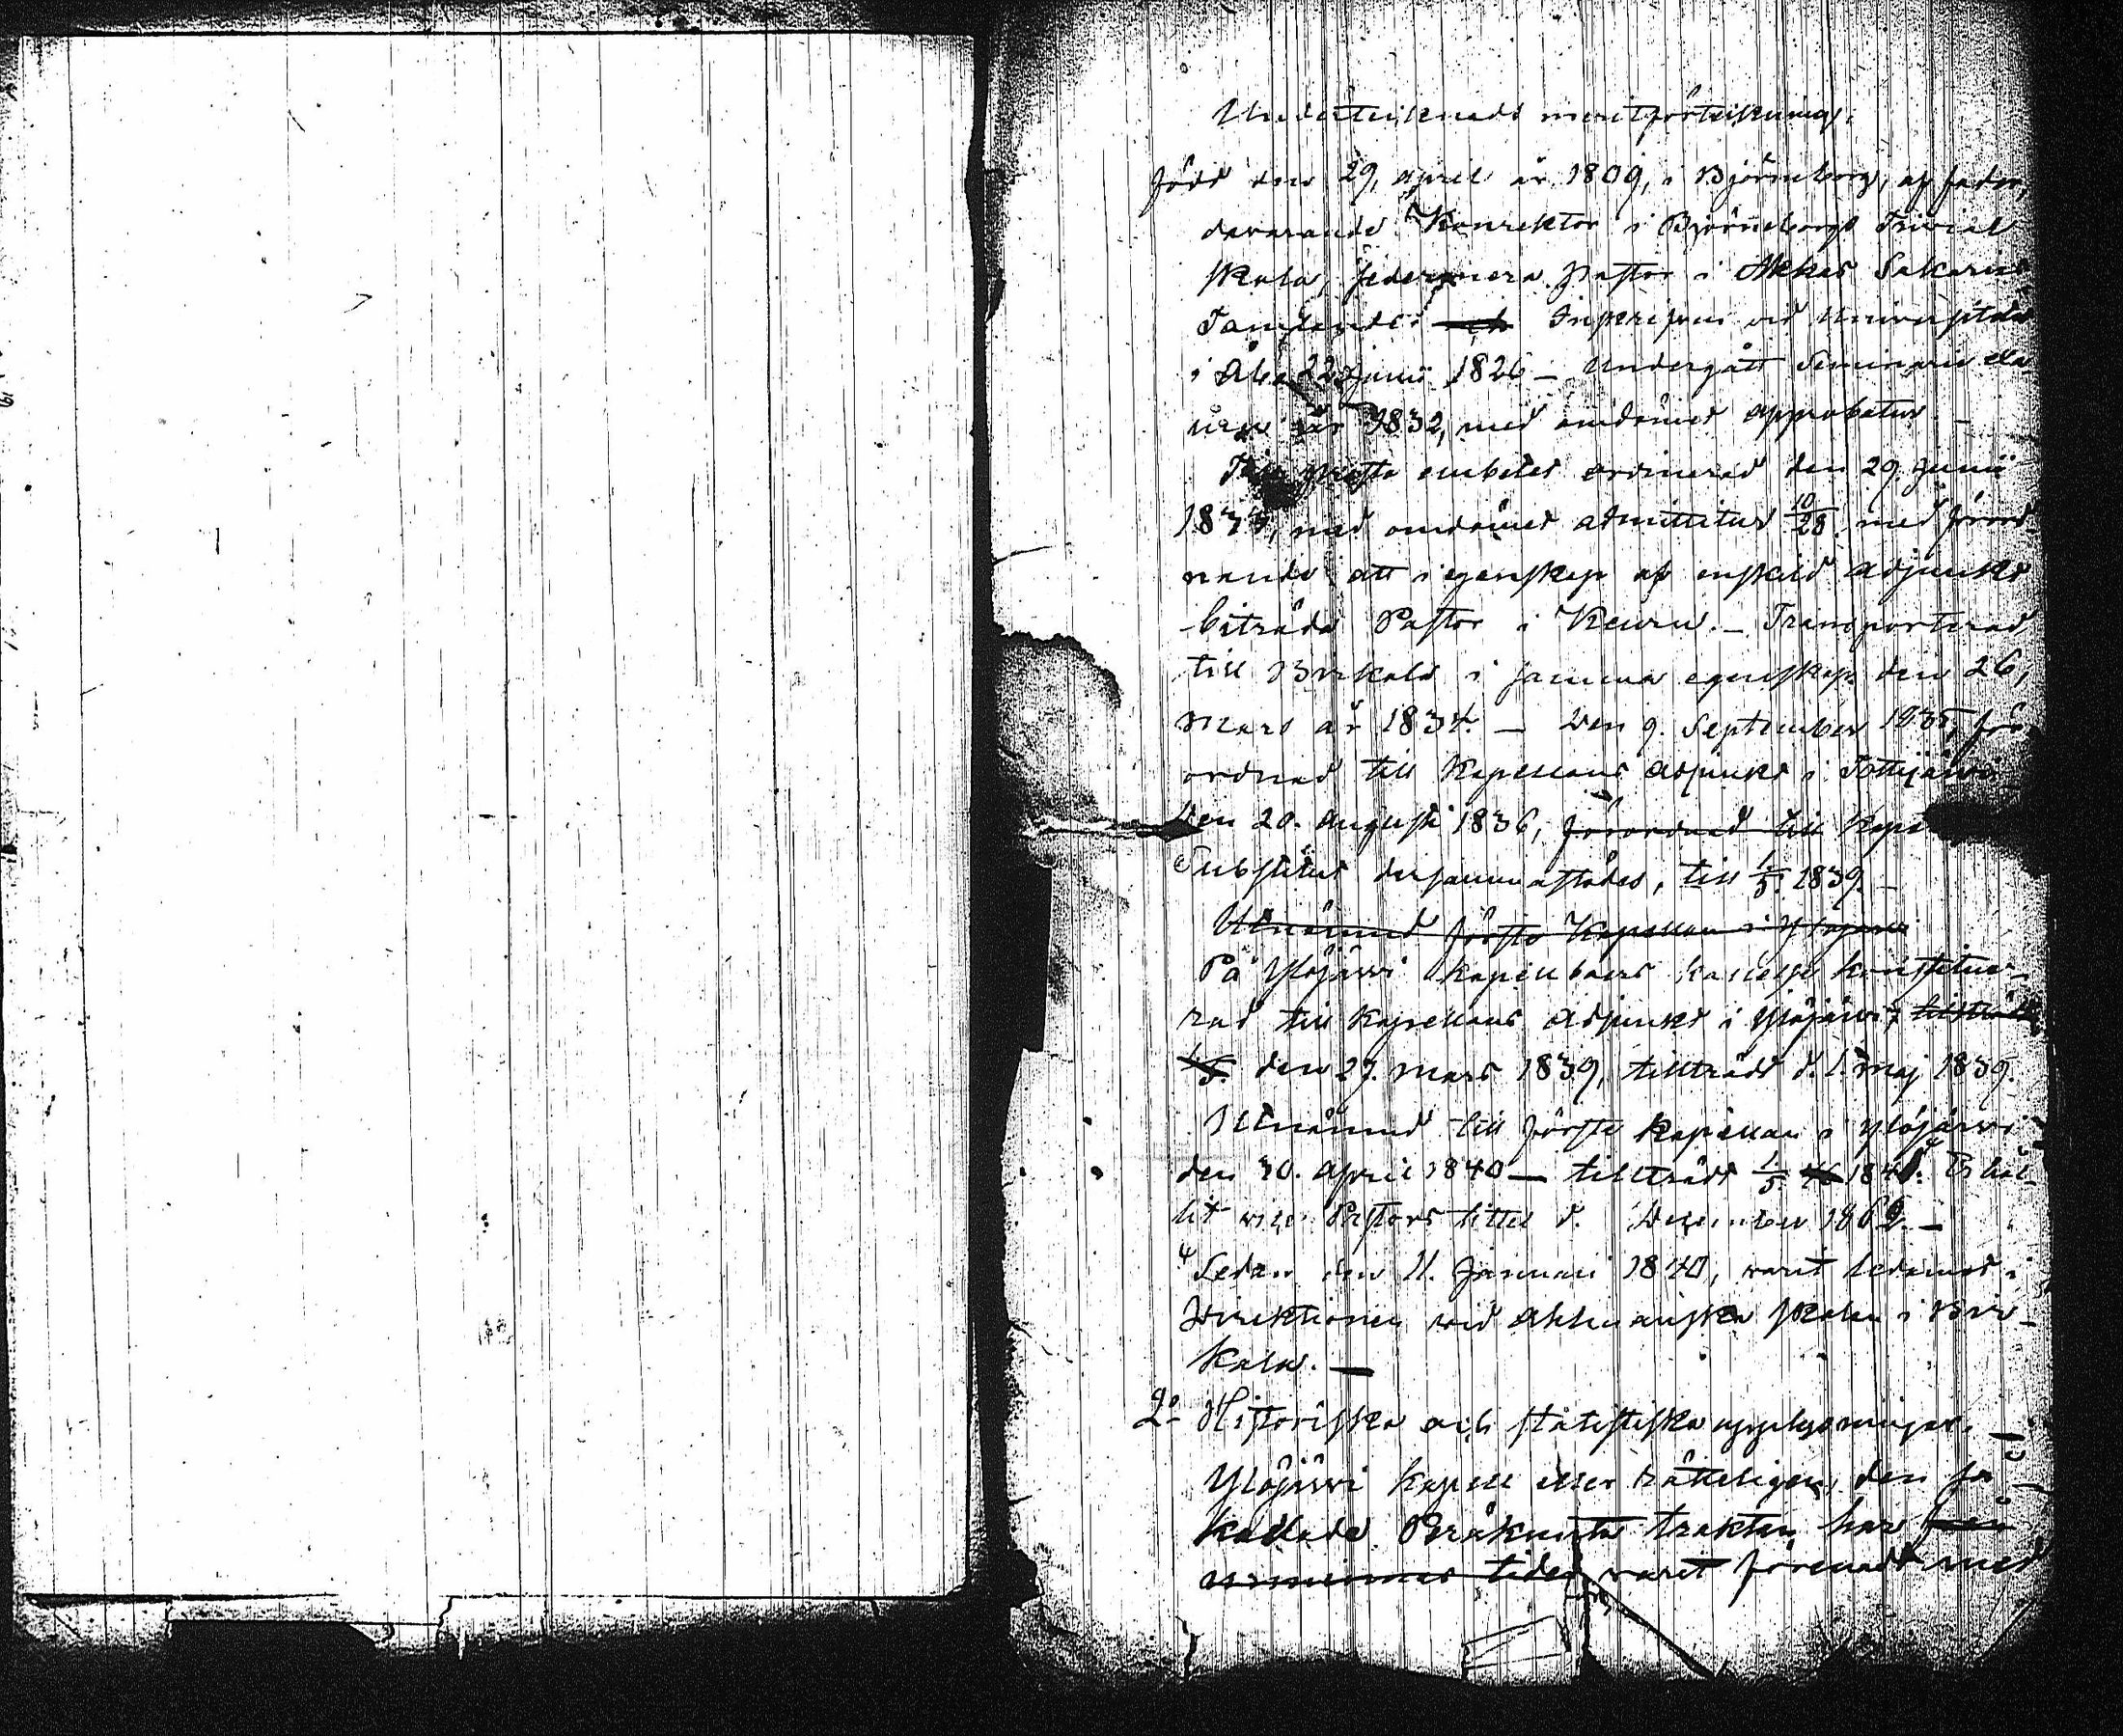 Undertecknads meritförteckning.
född den 29, april år 1809, i Björneborg, af fader,
davarande Konrektor i Björneborgs Trivial
skola, sedermera Pastor i Akkas Sakarias
och Inskrifven vid Universitetet
i Åbo 22 Junii 1826 – Undergått Seminarie exa-
men år 1832, med omdömet approbatur. –
Till prästa embetet ordinerad den 29. Junii
omdömet admittitur 10/28, med förord-
nande att i egenskap af enskild adjunkt
biträda Pastor i Keuru. – Transporterad
till Birkala i samma egenskap den 26,
Mars år 1834. – Den 9. September 1835, för-
ordnad till Kapellans adjunkt i Tottijärvi
den 20. Augusti 1836, förordnad till Kape
Substitut dersammastädes, till 1/5 1839 –
Utnämnd förste Kapellan i Ylöjärvi
På Ylöjärvi kapellboers kallelse konstitue-
rad till Kapellans adjunkt i Ylöjärvi, tillträdt
1/5. den 27. mars 1839, tillträdt d. 1. maj 1839.
Utnämnd till förste Kapellan i Ylöjärvi
den 30. April 1840 — tillträdt 1/5 Erhål-
lit vice Pastors tittel d. December 1862. –
Sedan den 11. Januari 1840, varit ledamot i
Direktionen vid Ahlmanska skolan i Bir-
kala. —
2o Historiska och statistiska upplysningar.
Ylöjärvi Kapell eller rätteligen, den så
kallade trakten har från
urminnes tider varit förenadt med